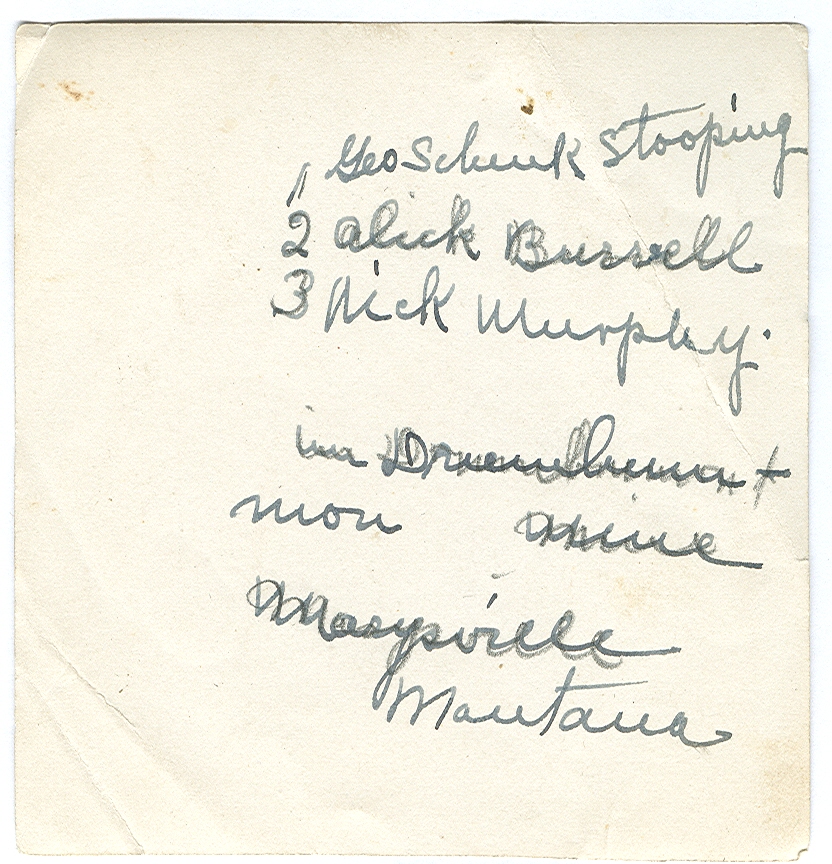 Geo Schenk Stooping
2 alick Burrell
3 Nick Murphy.
in
mon mine
Marysville
Montana